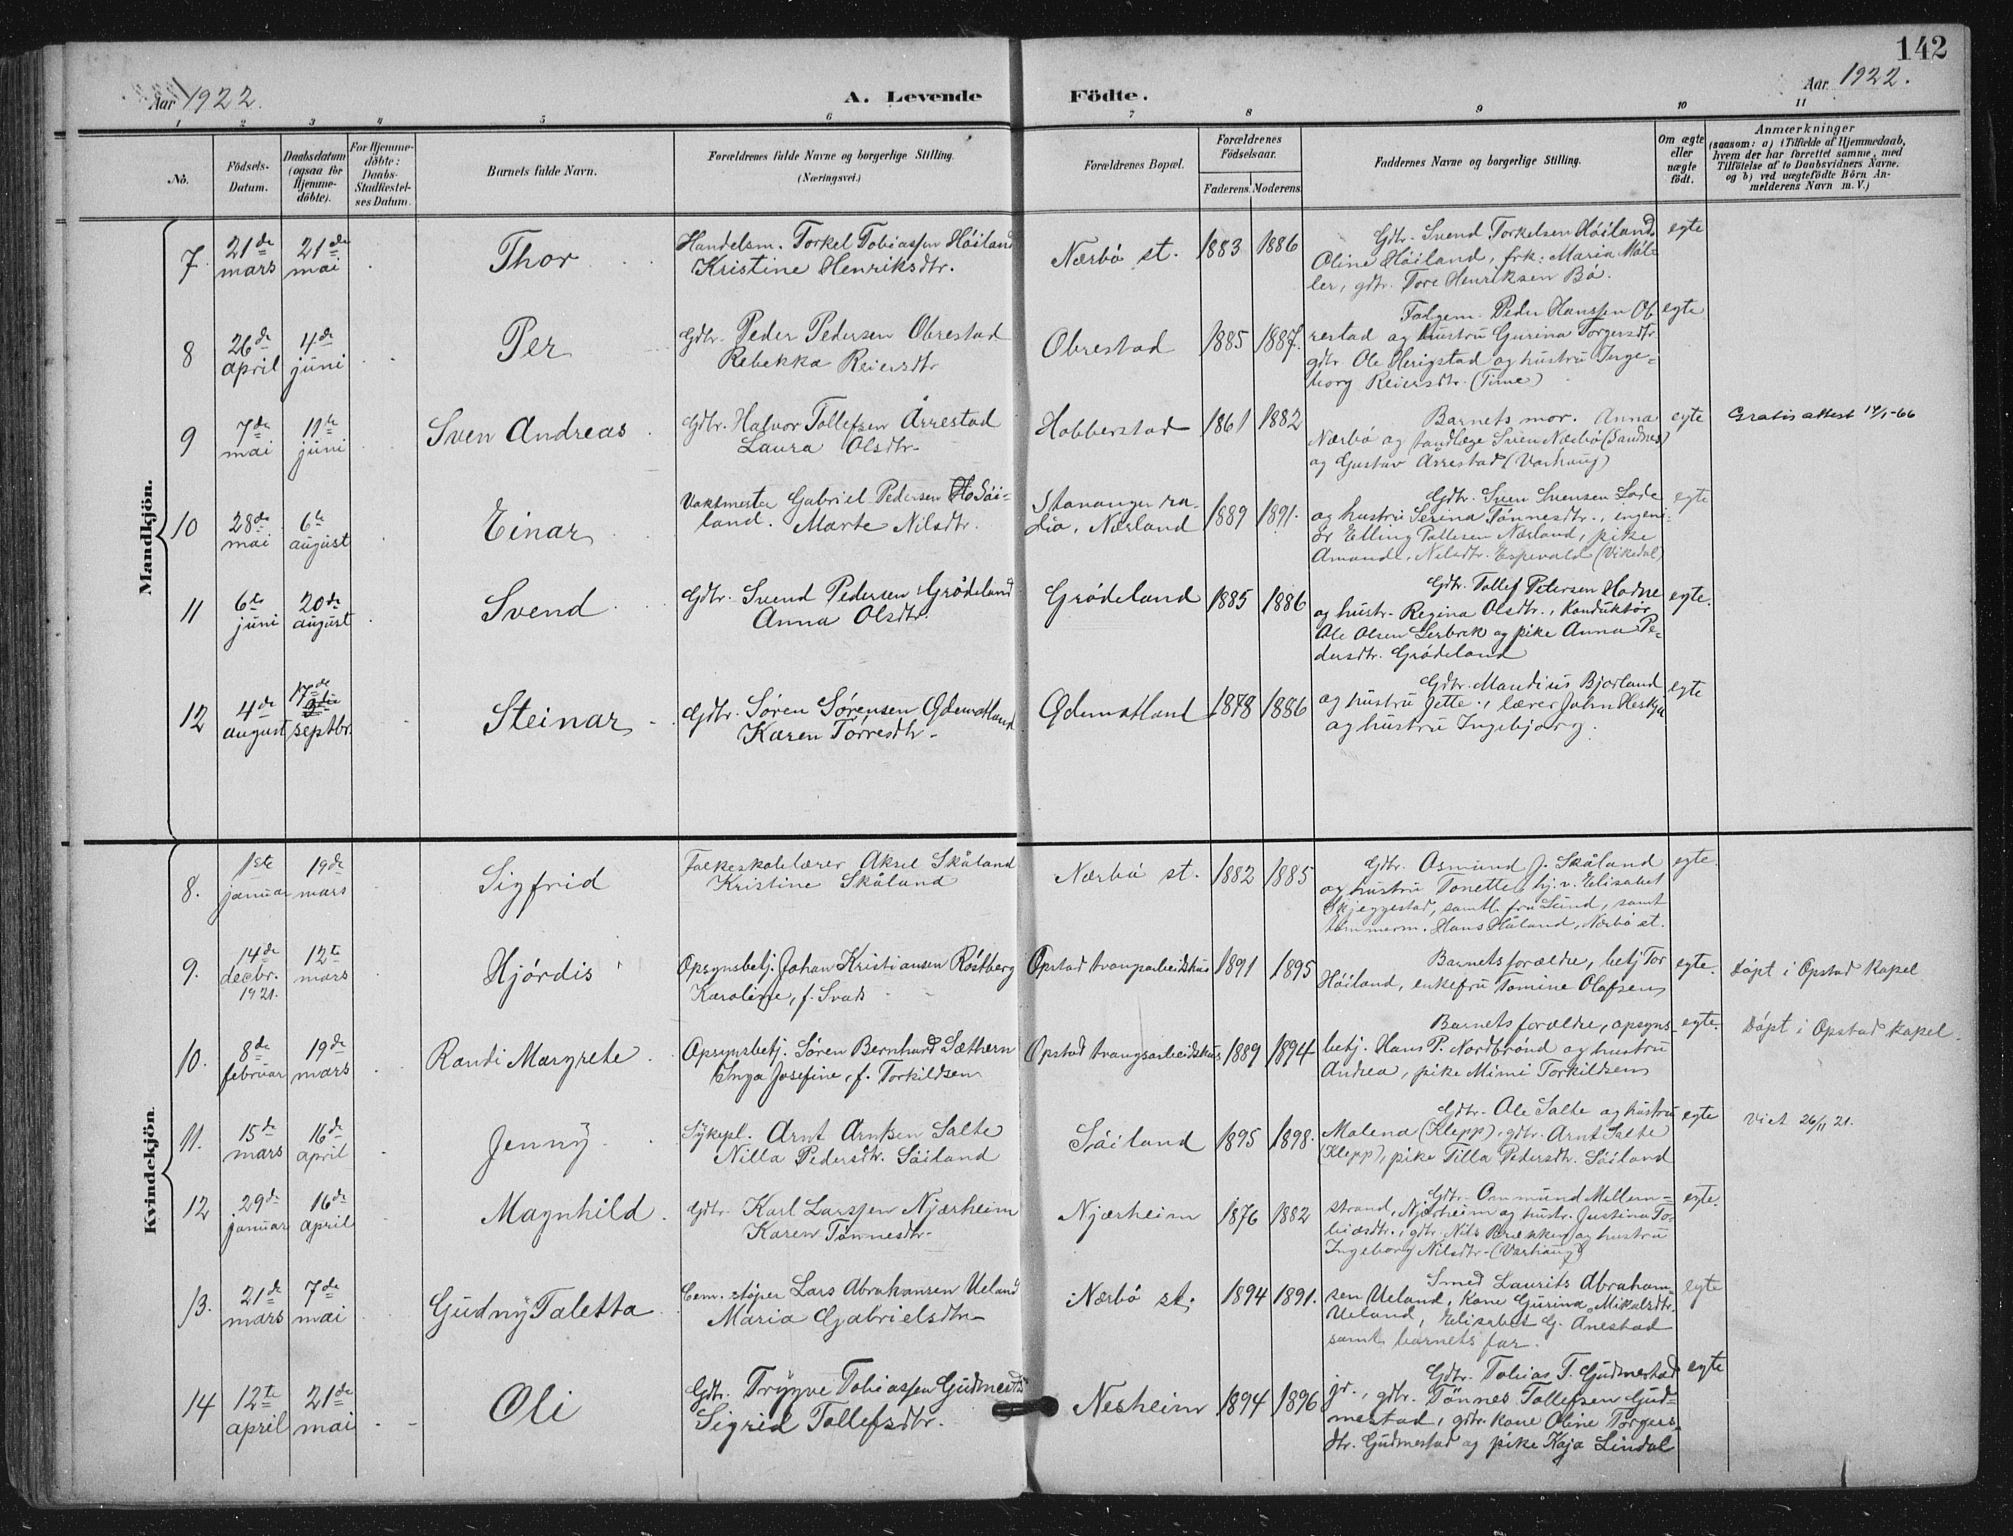 142
Aar 1922.
A. Levende
Födte.
Aar 1922.
1 2 3 4 5 6 7 8 9 10 11
No.
Födsels-
Datum.
Daabsdatum
(ogsaa for
Hjemme-
döbte).
For Hjemme-
döbte:
Daabs-
Stadfæstel-
ses Datum.
Barnets fulde Navn.
Forældrenes fulde Navne og borgerlige Stilling.
(Næringsvei.)
Forældrenes Bopæl.
Forældrenes
Födselsaar.
Faderens. Moderens.
Faddernes Navne og borgerlige Stilling.
Om ægte
eller
uægte
födt.
Anmærkninger
(saasom: a) i Tilfælde af Hjemmedaab,
hvem der har forrettet samme, med
Tilföielse af to Daabsvidners Navne,
og b) ved uægtefödte Börn An-
melderens Navn m. V.)
Mandkjön.
7 21de mars 21de mai
Thor
Handelsm. Torkel Tobiassen Höiland
Kristine Henriksdtr.
Nærbö st. 1883 1886
Gdbr. Svend Torkelsen Höiland,
Oline Höiland, frk. Maria Möl-
ler, gdbr. Tore Henriksen Bö.
egte
8 26de april 4de juni
Per
Gdbr. Peder Pedersen Obrestad
Rebekka Reiersdtr.
Obrestad 1885 1887.
Peder Hanssen Ob-
restad og hustru Gurina Torgersdtr
gdbr Ole Herigstad og hustru Inge-
borg Reiersdtr. (Time)
egte
9 7de mai 11te juni
Sven Andreas
Gdbr. Halvor Tollefsen Årrestad
Laura Olsdtr.
Hobberstad 1861 1882
Barnets mor. Anna
Nærbö og tandlæge Sven Nærbö (Sandnes)
og Gustav Årrestad (Varhaug)
egte
Gratis attest 14/1-66
10 28de mai 6te august
Einar
Vaktmester Gabriel Pedersen Söi-
land. Marte Nilsdtr.
Stavanger ra-
dio, Nærland 1889 1891.
Gdbr. Sven Svensen Lode
og hustru Serina Tönnesdtr., ingeni-
ör Elling Pallesen Nærland, pike
Amanda Nilsdtr. Espevold (Vikedal)
egte
11 6te juni 20de august
Svend
Gdbr. Svend Pedersen Grödeland
Anna Olsdtr.
Grödeland 1885 1886
Gdbr. Tollef Petersen Hodne
og hustr. Regina Olsdtr., Konduktör
Ole Olsen Serbrek og pike Anna Pe-
dersdtr. Grödeland
egte.
12 4de august 17de septbr.
Steinar
Gdbr. Sören Sörensen Odemotland
Karen Torresdtr.
Odemotland 1878 1886
Gdbr. Mandius Bjorland
og hustru Jette., lærer John Heskja
og hustru Ingebjorg.
egte
Kvindekjön.
8. 1ste januar 19de mars
Sigfrid
Folkeskolelærer Aksel Skåland
Kristine Skåland
Nærbö st. 1882 1885
Gdbr. Osmund J. Skåland
og hustru Tonette, hj. v. Elisabet
Skjeggestad, samtl. fru Lund, samt
tömmerm. Hans Håland, Nærbö st.
egte
9. 14de decbr. 1921. 12te mars
Hjördis
Opsynsbetj. Johan Kristiansen Röstberg
Karoline, f. Svads
Opstad tvangsarbeidshus 1891 1895
Barnets forældre, betj Tor
Höiland, enkefru Tomine Olafsen
egte.
Döpt i Opstad kapel
10. 8de februar 19de mars
Randi Margrete
Opsynsbetj. Sören Bernhard Sæthern
Inga Josefine, f. Torkildsen
Opstad tvangsarbeidshus 1889 1894
Barnets forældre, opsyns-
betj. Hans P. Nordbrönd og hustru
Andrea, pike Mimi Torkildsen
egte.
Döpt i Opstad kapel.
11. 15de mars 16de april
Jenny
Sykepl. Arnt Arntsen Salte
Nilla Pedersdtr. Söiland
Söiland 1895 1898.
Gdbr. Ole Salte og hustru
Malena (Klepp), gdbr. Arnt Salte
(Klepp), pike Tilla Pedersdtr. Söiland
egte
Viet 26/11 21.
12 29de januar 16de april
Magnhild
Gdbr. Karl Larssen Njærheim
Karen Tönnesdtr.
Njærheim 1876 1882
Gdbr. Ommund Mellem-
strand, Njærheim og hustr. Justina To-
biasdtr., gdbr. Nils Brekken og hustru
Ingeborg Nilsdtr. (Varhaug)
egte.
13. 21de mars 7de mai
Gudny Taletta
Cem. stöper Lars Abrahamsen Ueland
Maria Gabrielsdtr.
Nærbö st. 1894 1891.
Smed Laurits Abraham-
sen Ueland, kone Gurina Mikalsdtr.
Ueland, Elisabet G. Anestad
samt barnets far.
egte
14 12te april 21de mai
Oli
Gdbr. Trygve Tobiassen Gudmestad
Sigrid Tollefsdtr.
Nesheim 1894 1896
Gdbr. Tobias T. Gudmestad
jr., gdbr. Tönnes Tollefsen Gud-
mestad, gdbr. kone Oline Torgers-
dtr. Gudmestad og pike Kaja Lindal
egte